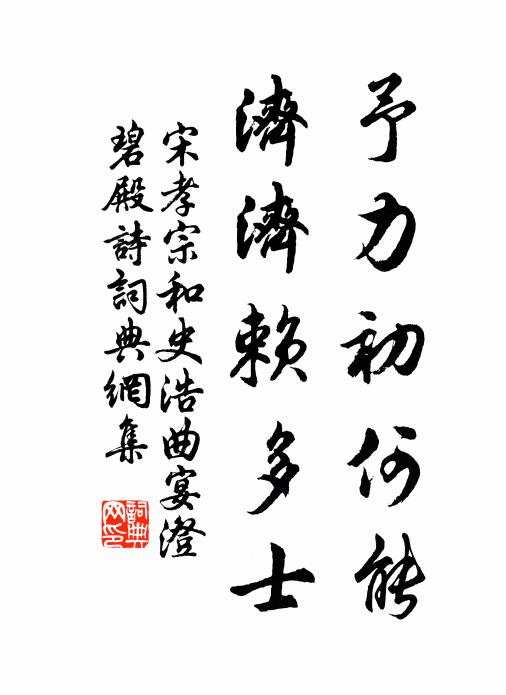 予力初何能
濟濟賴多士
宋孝宗和史浩曲宴澄
碧殿詩詞典網集
詞典
网印